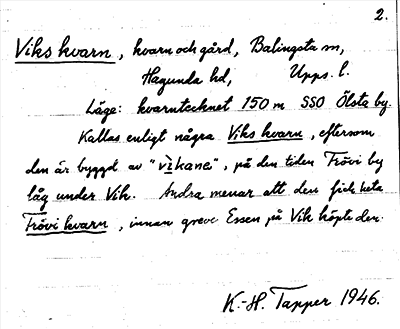 2.
Viks kvarn, kvarn och gård, Balingsta sn,
Hagunda hd, Upps. l.
Läge: kvarntecknet 150 m SSO Ölsta by.
Kallas enligt några Viks kvarn, eftersom
den är byggd av "vikane", på den tiden Frövi by
låg under Vik. Andra menar att den fick heta
Frövi kvarn, innan greve Essen på Vik köpte den.
K.-H. Tapper 1946.